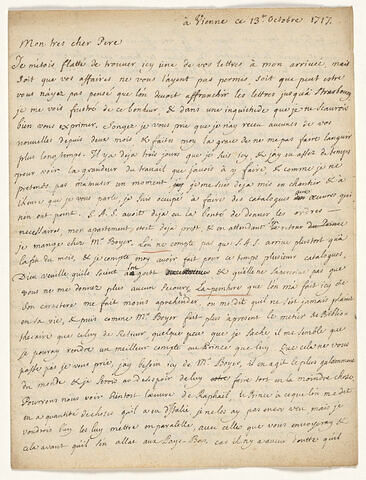 à Vienne ce 13e. Octobre 1717.
Mon tres cher Pere
Je m'etois flatté de trouver icy une de vos lettres à mon arrivée, mais
soit que vos affaires ne vous l'ayent pas permis, soit que peut estre
vous n'ayez pas pensé que l'on devoit affranchir les lettres jusqu'à Strasbourg
je me vois frustré de ce bonheur, & dans une inquietude que je ne scaurois
bien vous exprimer. Songez je vous prie que je n'ay receu aucunes de vos
nouvelles depuis deux mois, & faites moy la grace de ne me pas faire languir
plus longtemps. Il y a deja trois jours que je suis icy, & j'ay eu assez de temps
pour voir la grandeur du travail que j'avois à y faire, & comme je ne
pretends pas m'amuser un moment, je me suis deja mis en chantier & à
l'heure que je vous parle, je suis occupé à faire des catalogues aux œuvres qui
n'en ont point. S. A. S. avoit deja eu la bonté de donner les ordres
necessaires, mon apartement estoit deja prest & en attendant le retour du Prince
je mange chez Mr. Boyer. L'on ne compte pas que S. A. S. arrive plustost qu'à
la fin du mois, & je compte moy avoir fait pour ce temps plusieurs catalogues.
Dieu veuille qu'ils soient à son goust & qu'elle ne
vous ne me donnez plus aucun secours. La peinture que l'on m'a fait icy de
son caractere me fait moins aprehender, on m'a dit qu'il ne s'est jamais plaint
en sa vie, & puis comme Mr. Boyer fait plus à present le metier de Biblio-
thecaire que celuy de Relieur, quelque peu que je sache il me semble que
je pourray rendre un meilleur compte au Prince que luy. Que cela ne vous
passe pas je vous prie, j'ay besoin icy de Mr. Boyer, il en agit le plus galamment
du monde & je serois au desespoir de luy faire tort en la moindre chose.
Pourrons nous voir bientost l'œuvre de Raphael, le Prince à ce que l'on m'a dit
en a quantité de choses qu'il a eu d'Italie, je ne les ay pas encor veu mais je
voudrois bien les luy mettre en paralelle, avec celle que vous envoyerez &
cela avant qu'il s'en allat aux Pays-Bas, car il n'y a aucun doutte qu'il